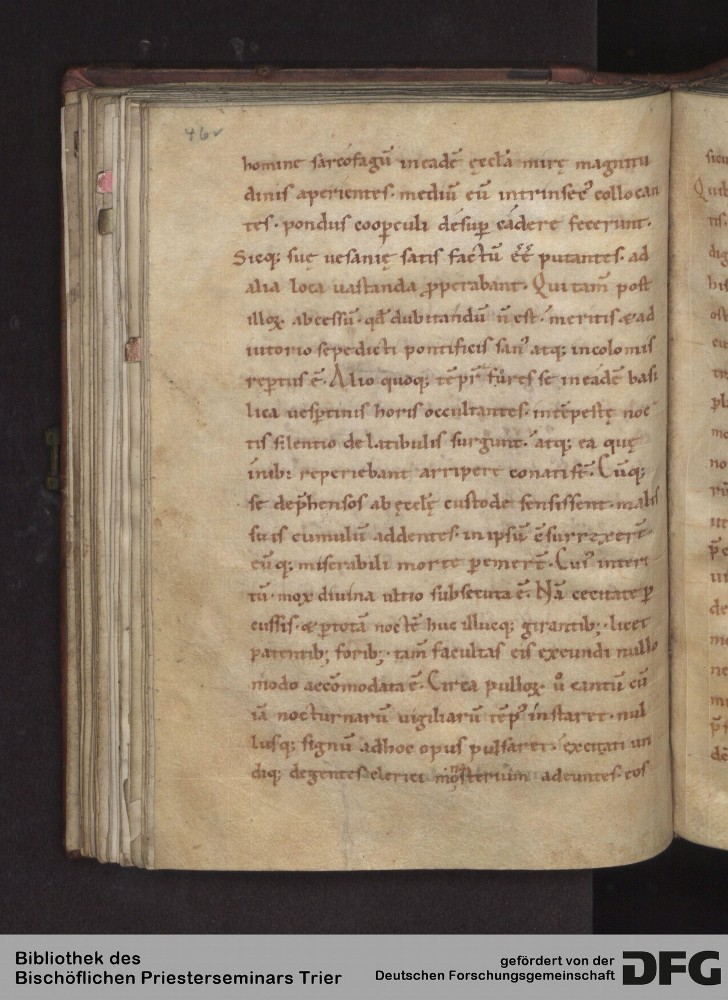 46v
homine sarcofagū in eadē ęcclā mirę magnitu
dinis aperientes. mediū eū intrinsec᷒ collocan
tes. pondus cooꝑculi desuꝑ cadere fecerunt.
Sicq; suę uesanię satis factū eē putantes. ad
alia loca uastanda ꝓperabant. Qui tam̄ post
illoꝝ abcessū. qđ dubitandū n̄ est. meritis. & ad
iutorio sepedicti pontificis san᷒ atq; incolomis
reptus ē. Alio quoq; tēpr̄ fures se in eadē basi
lica uesꝑtinis horis occultantes. intēpestę noc
tis silentio de latibulis surgunt. atq; ea quę
inibi reperiebant arripere conati sт̄. Cūq;
se dep̄hensos ab ęcclę custode sensissent. malis
suis cumulū addentes. in ipsū ēsurrexerт̄.
eūq; miserabili morte ꝑemerт̄. Cui᷒ interi
tū. mox diuina ultio subsecuta ē. Nā cecitate ꝑ
cussis. & ꝑ totā noctē huc illucq; girantib;. licet
patentib; forib;. tam̄ facultas eis exeundi nullo
modo accōmodata ē. Circa pulloꝝ ů cantū cū
iā nocturnarū uigiliarū tēp᷒ instaret. nul
lusq; signū ad hoc opus pulsaret. excitati un
diq; degentes clerici monasterium adeuntes. eos
Bibliothek des
Bischöflichen Priesterseminars Trier
gefördert von der
Deutschen Forschungsgemeinschaft
DFG